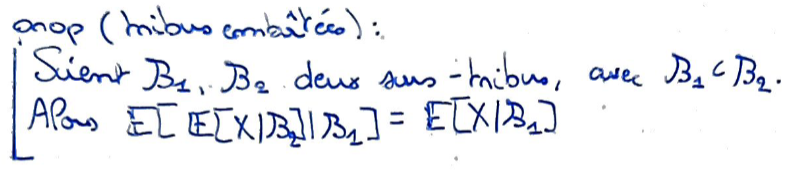 prop (tribus emboîtées) :
Soient B₁, B₂ deux sous-tribus, avec B₁ ⊂ B₂.
Alors 𝔼[𝔼[X|B₂]|B₁] = 𝔼[X|B₁]